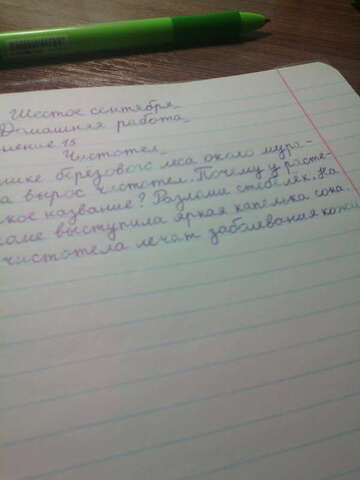 Шестое сентября
Домашняя работа
нение 15
Чистотел
шке берёзового леса около мура-
а вырос чистотел. Почему у расте-
кое название? Разломи стебелёк. На
оме выступила яркая капелька сока.
чистотела лечат заболевания кожи